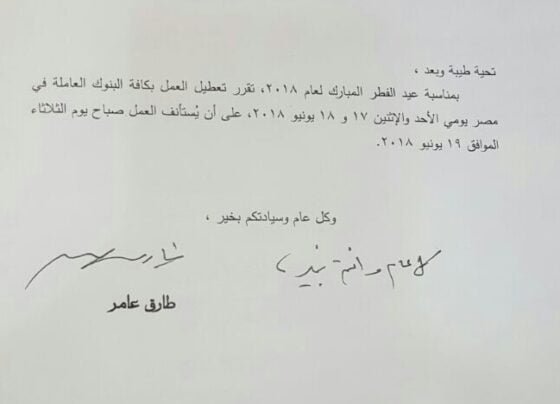 تحية طيبة وبعد ،
بمناسبة عيد الفطر المبارك لعام ٢٠١٨، تقرر تعطيل العمل بكافة البنوك العاملة في
مصر يومي الأحد والإثنين ١٧ و ١٨ يونيو ٢٠١٨، على أن يُستأنف العمل صباح يوم الثلاثاء
الموافق ١٩ يونيو ٢٠١٨.
وكل عام وسيادتكم بخير ،
كل عام وأنتم بخير ،
طارق عامر